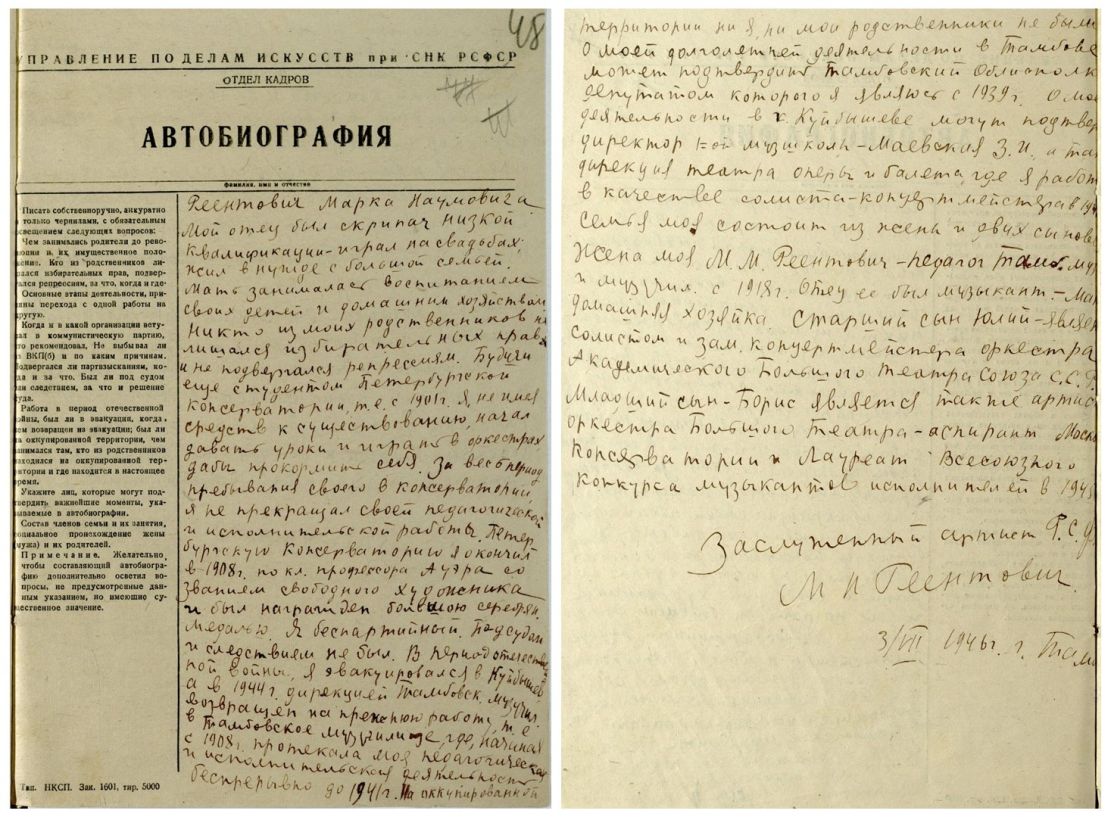 48
УПРАВЛЕНИЕ ПО ДЕЛАМ ИСКУССТВ при СНК РСФСР
ОТДЕЛ КАДРОВ
АВТОБИОГРАФИЯ
фамилия, имя и отчество
Писать собственоручно, аккуратно
и только чернилами, с обязательным
освещением следующих вопросов:
Чем занимались родители до рево-
люции и их имущественное поло-
жение. Кто из родственников ли-
шался избирательных прав, подвер-
гался репрессиям, за что, когда и где
Основные этапы деятельности, при-
чины перехода с одной работы на
другую.
Когда и в какой организации всту-
пал в коммунистическую партию,
кто рекомендовал, Не выбывал ли
из ВКП(б) и по каким причинам.
Подвергался ли партвзысканиям, ко-
гда и за что. Был ли под судом
или следствием, за что и решение
суда.
Работа в период отечественной
войны, был ли в эвакуации, когда
чем возвращен из эвакуации; был ли
на оккупированной территории, чем
занимался там, кто из родственников
находился на оккупированной тер-
ритории и где находится в настоящее
время.
Укажите лиц, которые могут под-
твердить важнейшие моменты, ука-
зываемые в автобиографии.
Состав членов семьи и их занятия,
социальное происхождение жены
(мужа) и их родителей.
Примечание. Желательно,
чтобы составляющий автобиогра-
фию дополнительно осветил во-
просы, не предусмотренные дан-
ным указанием, но имеющие су-
щественное значение.
Тип. НКСП. Зак. 1601, тир. 5000
Реентович Марка Наумовича
Мой отец был скрипач низкой
квалификации – играл на свадьбах;
жил в нужде с большой семьей.
Мать занималась воспитанием
своих детей и домашним хозяйством
Никто из моих родственников не
лишался избирательных прав
и не подвергался репрессиям. Будучи
еще студентом Петербургской
консерватории, т.е. с 1901г. я, не имея
средств к существованию, начал
давать уроки и играть в оркестрах
дабы прокормить себя. За весь период
пребывания своего в консерватории
я не прекращал своей педагогической
и исполнительской работы. Петер
бургскую Консерваторию я окончил
в 1908г. по кл. профессора Ауэра со
званием свободного художника
и был награжден большою серебрян.
медалью. Я беспартийный, под судом
и следствием не был. В период отечествен
ной войны, я эвакуировался в Куйбышев
а в 1944г. дирекцией Тамбовск. музучил.
возвращен на прежнюю работу, т.е.
в Тамбовское музучилище, где, начиная
с 1908г. протекала моя педагогическая
и исполнительская деятельность
беспрерывно до 1941г. На оккупированной
территории ни я, ни мои родственники не были
О моей долголетней деятельности в Тамбове
может подтвердить Тамбовский Облисполк
депутатом которого я являюсь с 1939г. О мое
деятельности в г. Куйбышеве могут подтвер
директор 1-ой музшколы – Маевская З.И. а так
дирекция театра оперы и балета, где я работ
в качестве солиста-концертмейстера в 19
семья моя состоит из жены и двух сынове
Жена моя М.М. Реентович – педагог Тамб. муз
и музучил. с 1918г. Отец ее был музыкант. – Мат
домашняя хозяйка. Старший сын Юлий – являет
солистом и зам. концертмейстера оркестра
Академического Большого театра Союза С.С.Р.
Младший сын – Борис является также артис
оркестра Большого театра – аспирант Моск
Консерватории и Лауреат Всесоюзного
Конкурса музыкантов исполнителей в 194
Заслуженный артист Р.С.Ф
М Н Реентович
3/VII 1946г. г. Тамб